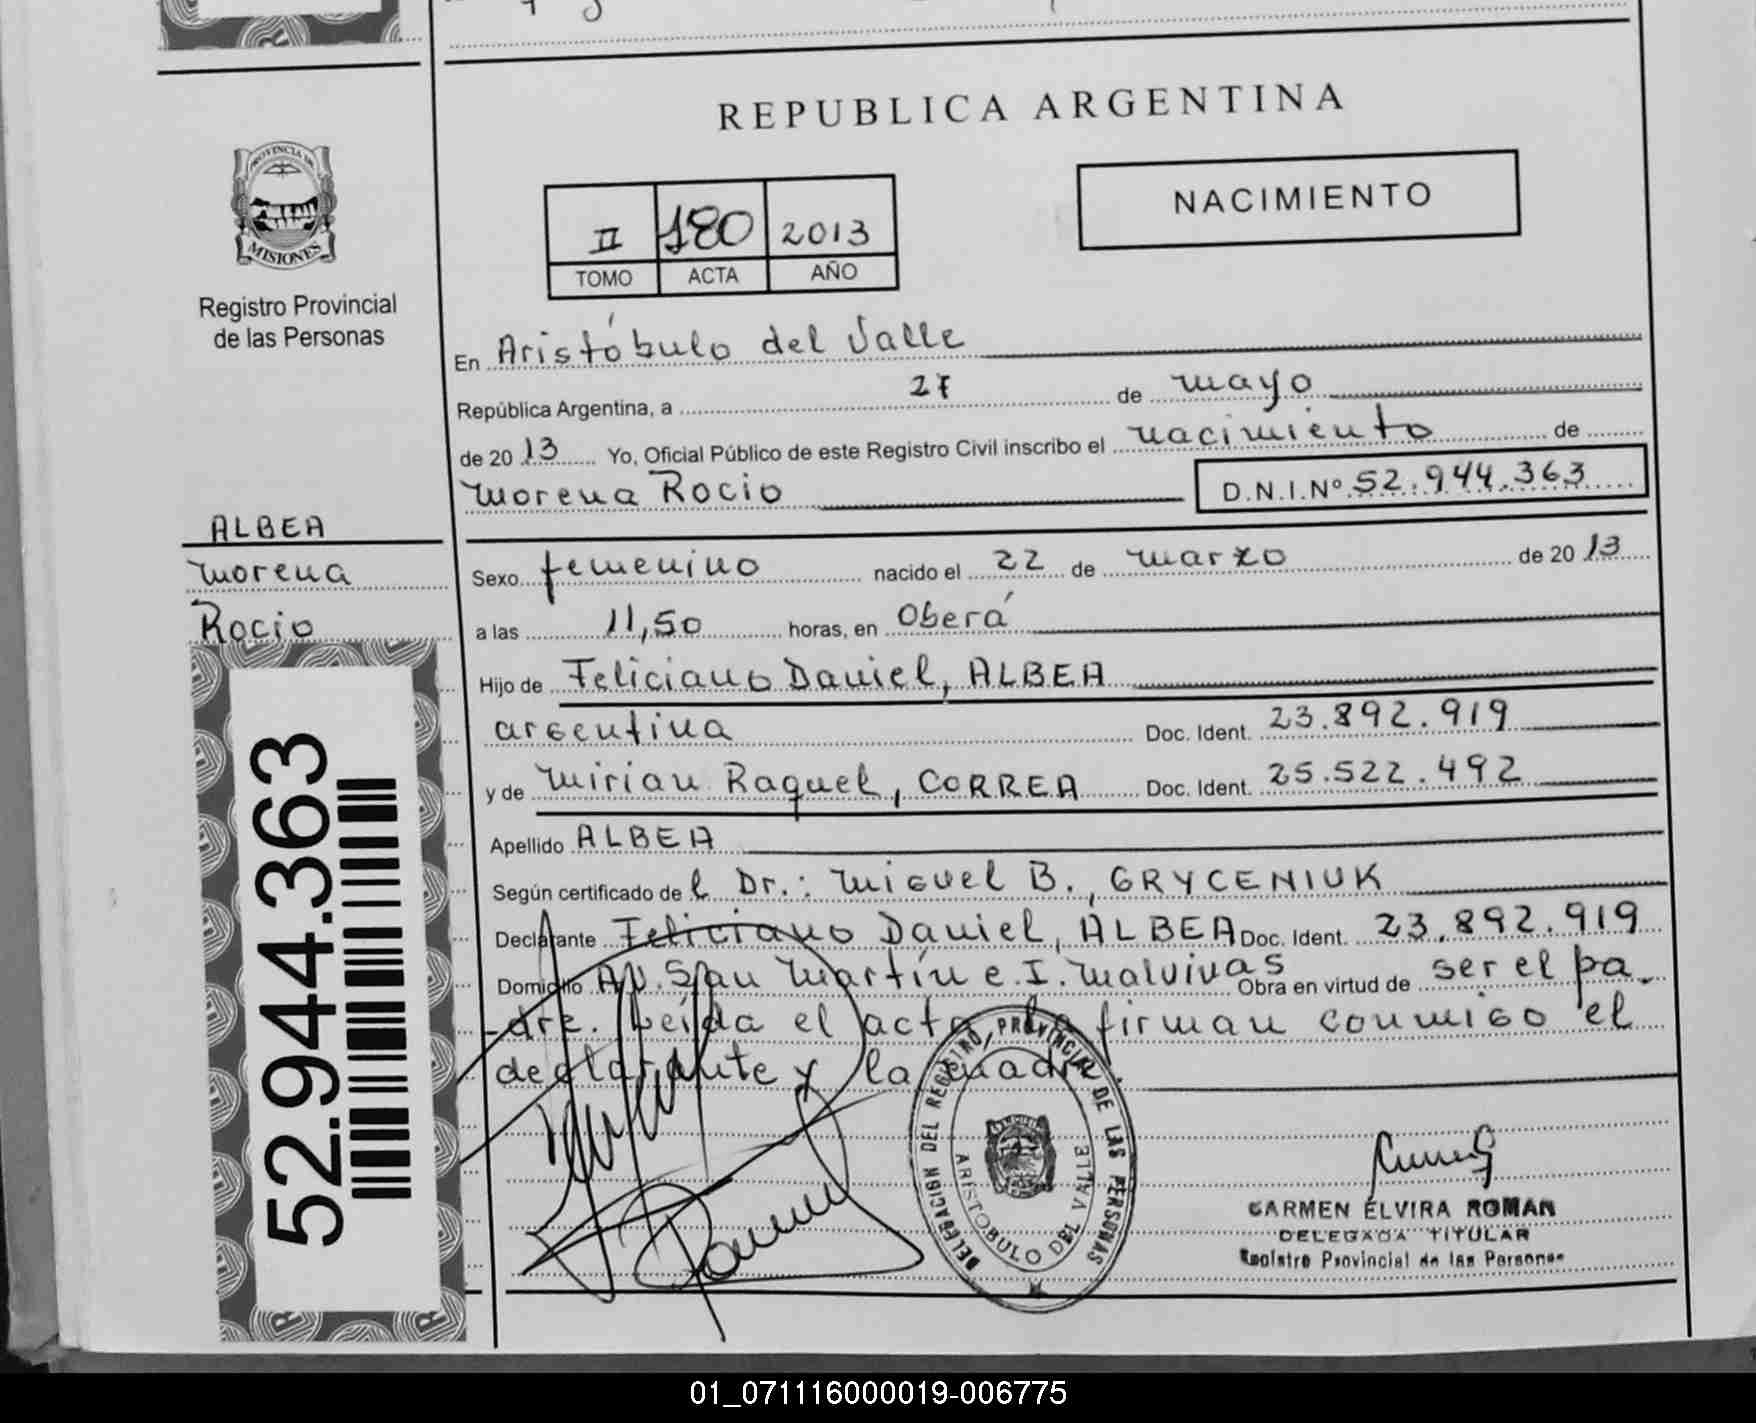 REPUBLICA ARGENTINA
NACIMIENTO
II 180 2013
TOMO ACTA AÑO
PROVINCIA DE
MISIONES
Registro Provincial
de las Personas
En Aristóbulo del Valle
República Argentina, a 27 de mayo
de 20 13 Yo, Oficial Público de este Registro Civil inscribo el nacimiento de
Morena Rocio
D.N.I.Nº 52.944.363
ALBEA
Morena
Rocio
52.944.363
Sexo femenino nacido el 22 de marzo de 20 13
a las 11,50 horas, en Oberá
Hijo de Feliciano Daniel, ALBEA
argentina Doc. Ident. 23.892.919
y de Mirian Raquel, CORREA Doc. Ident. 25.522.492
Apellido ALBEA
Según certificado de l Dr.: Miguel B., GRYCENIUK
Declarante Feliciano Daniel, ALBEA Doc. Ident. 23.892.919
Domicilio Av. San Martín e I. Malvinas Obra en virtud de ser el pa
-dre. Leída el acta la firman conmigo el
declarante y la madre.
DELEGACION DEL REGISTRO PROVINCIAL DE LAS PERSONAS
ARISTOBULO DEL VALLE
CARMEN ELVIRA ROMAN
DELEGADA TITULAR
Registro Provincial de las Personas
01_071116000019-006775